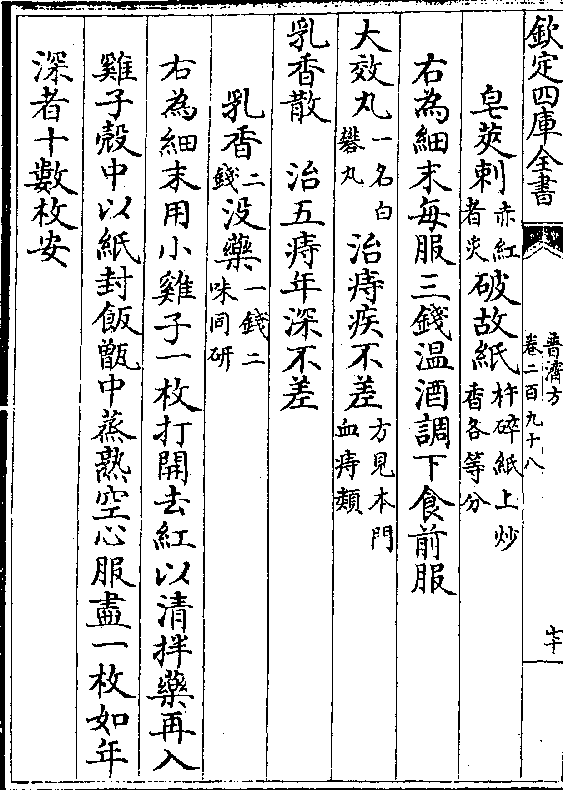 欽定四庫全書
普濟方
卷二百九十八
七十
皂莢刺赤紅者炎破故紙杵碎紙上炒香各等分
右為細末每服三錢温酒調下食前服
大效丸一名白礬丸治痔疾不差方見本門血痔類
乳香散 治五痔年深不差
乳香二錢没藥一錢二味同研
右為細末用小雞子一枚打開去紅以清拌藥再入
雞子殼中以紙封飯甑中蒸熟空心服盡一枚如年
深者十數枚安